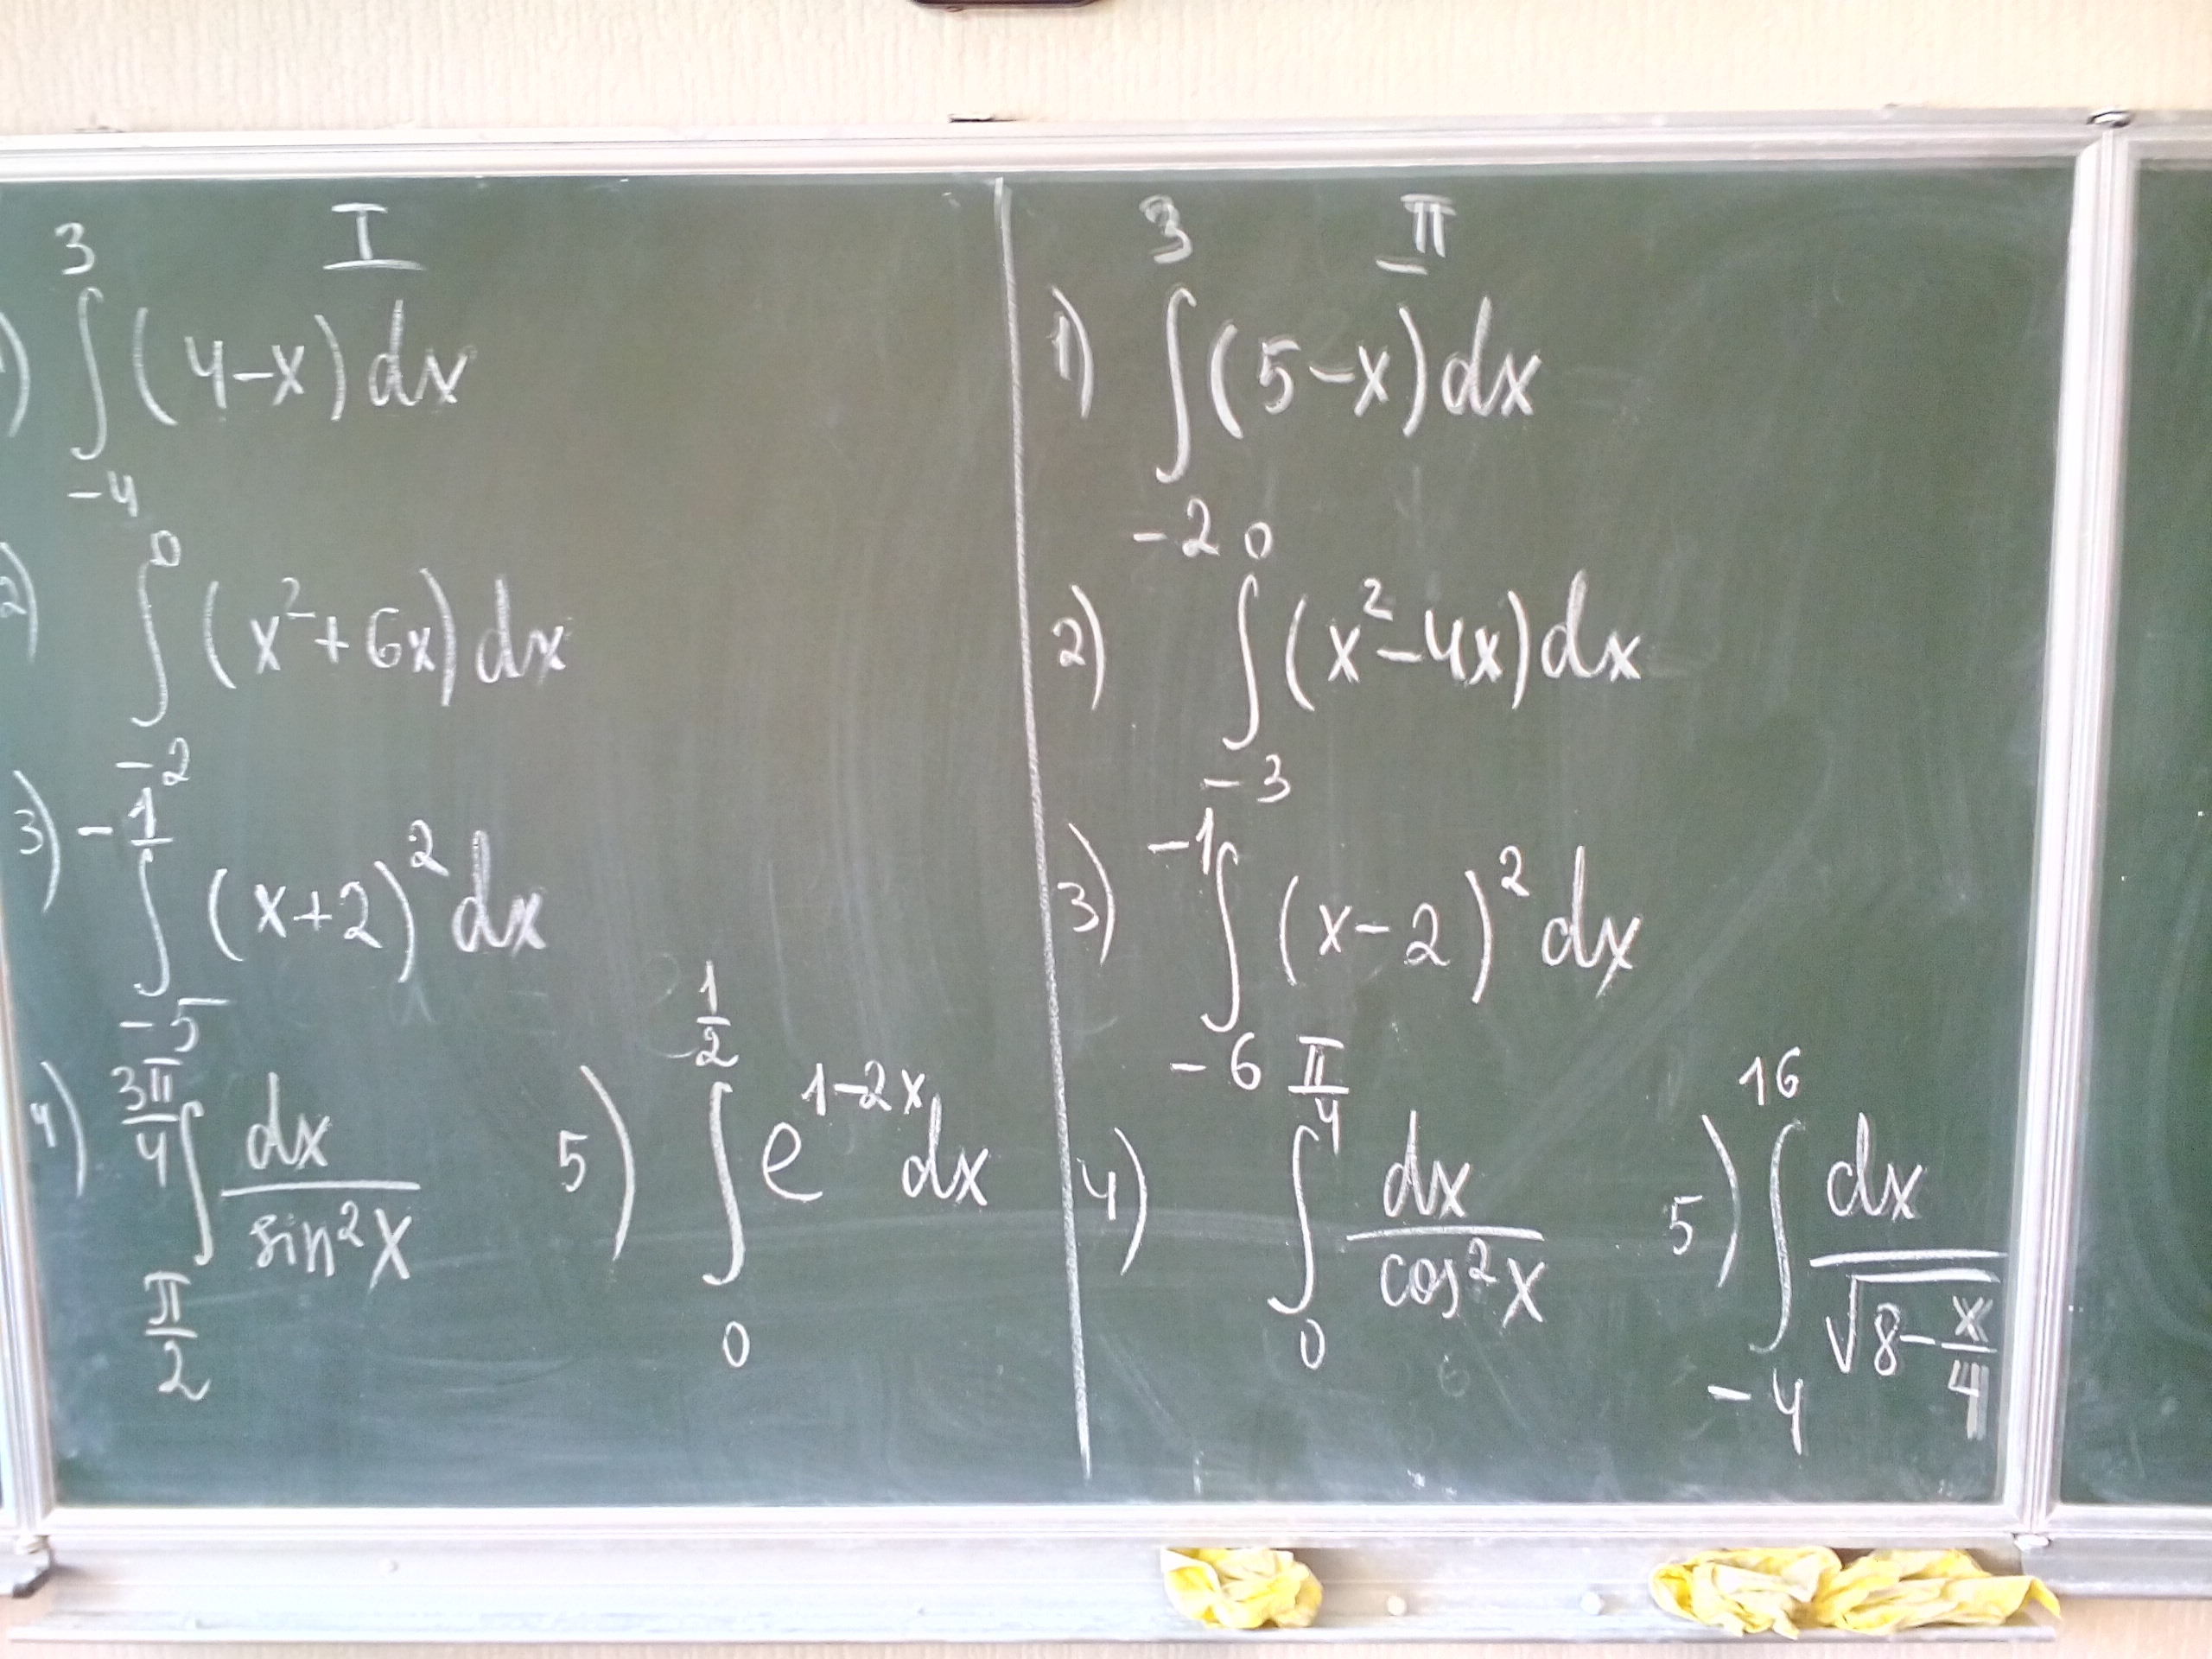 I
1) ∫_{-4}^{3} (4-x)dx
2) ∫_{-2}^{0} (x²+6x)dx
3) ∫_{-5}^{-1} (x+2)²dx
4) ∫_{π/2}^{3π/4} dx/sin²x
5) ∫_{0}^{1/2} e^{1-2x}dx
II
1) ∫_{-2}^{3} (5-x)dx
2) ∫_{-3}^{0} (x²-4x)dx
3) ∫_{-6}^{-1} (x-2)²dx
4) ∫_{0}^{π/4} dx/cos²x
5) ∫_{-4}^{16} dx/√(8-x/4)